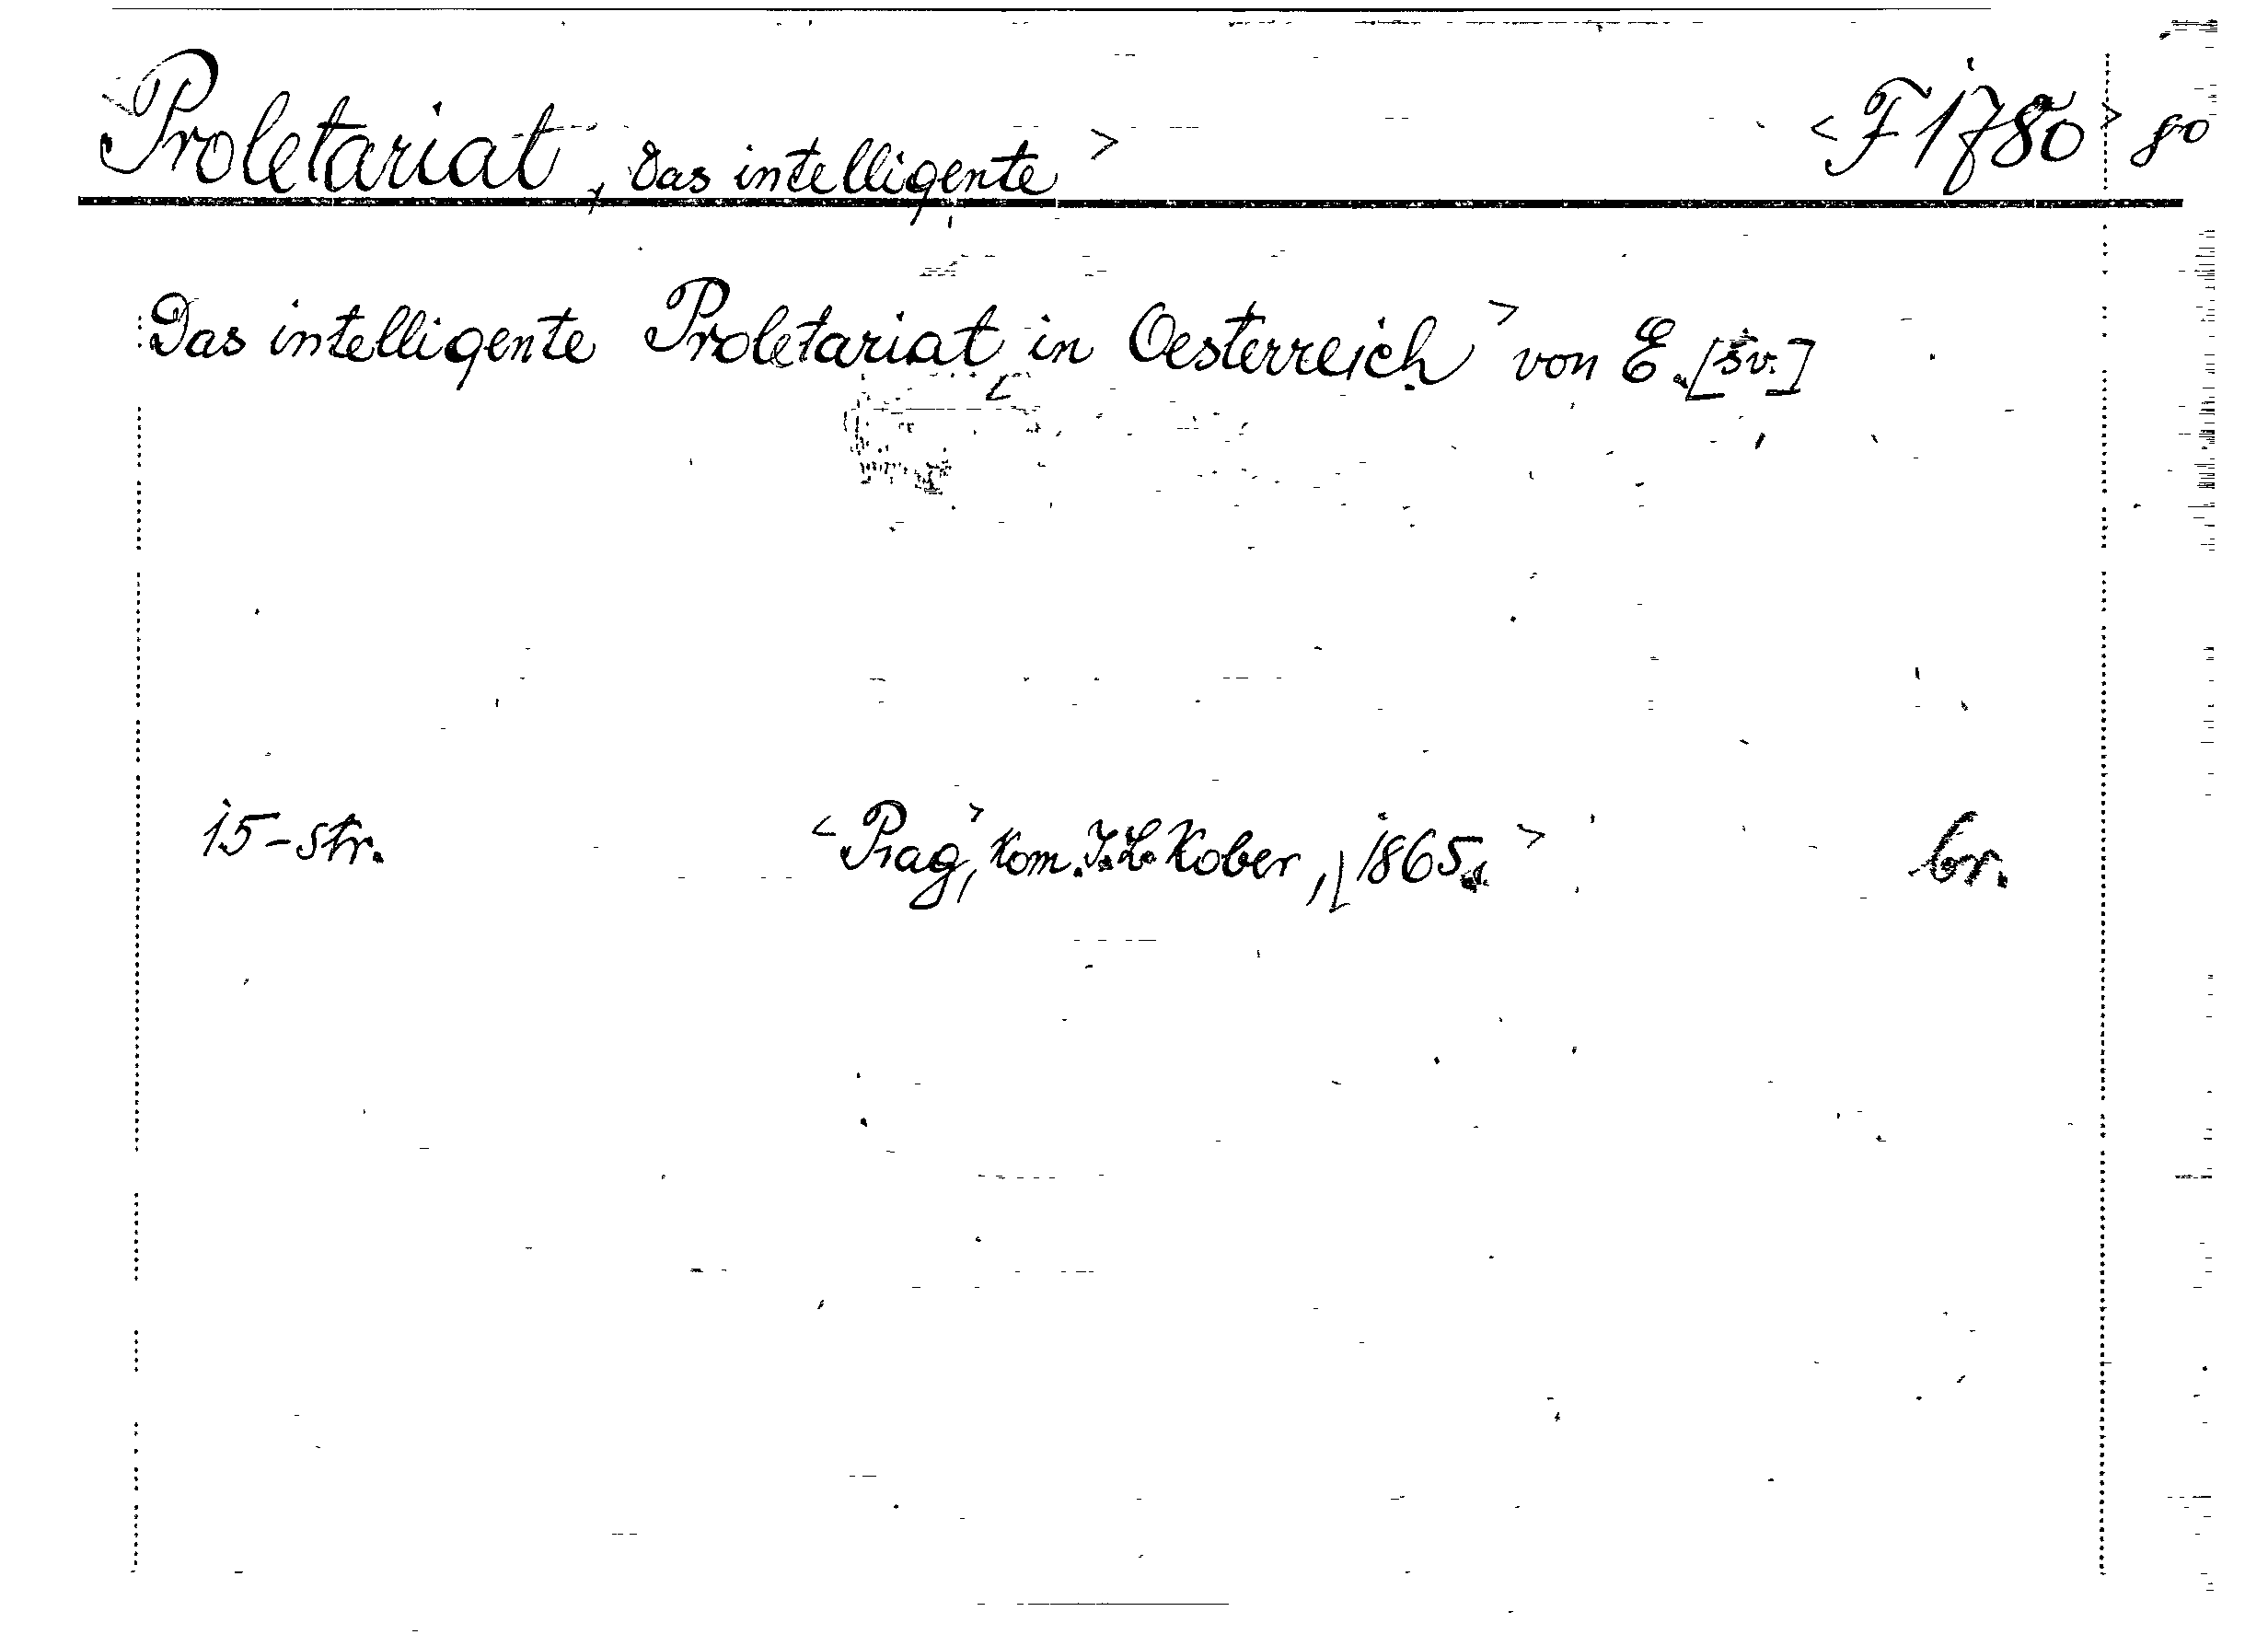 Proletariat, Das intelligente > <F 1780> 80
Das intelligente Proletariat in Oesterreich > von E. [šv.]
15-str. <Prag>, Kom. J.L. Kober, [1865.> br.